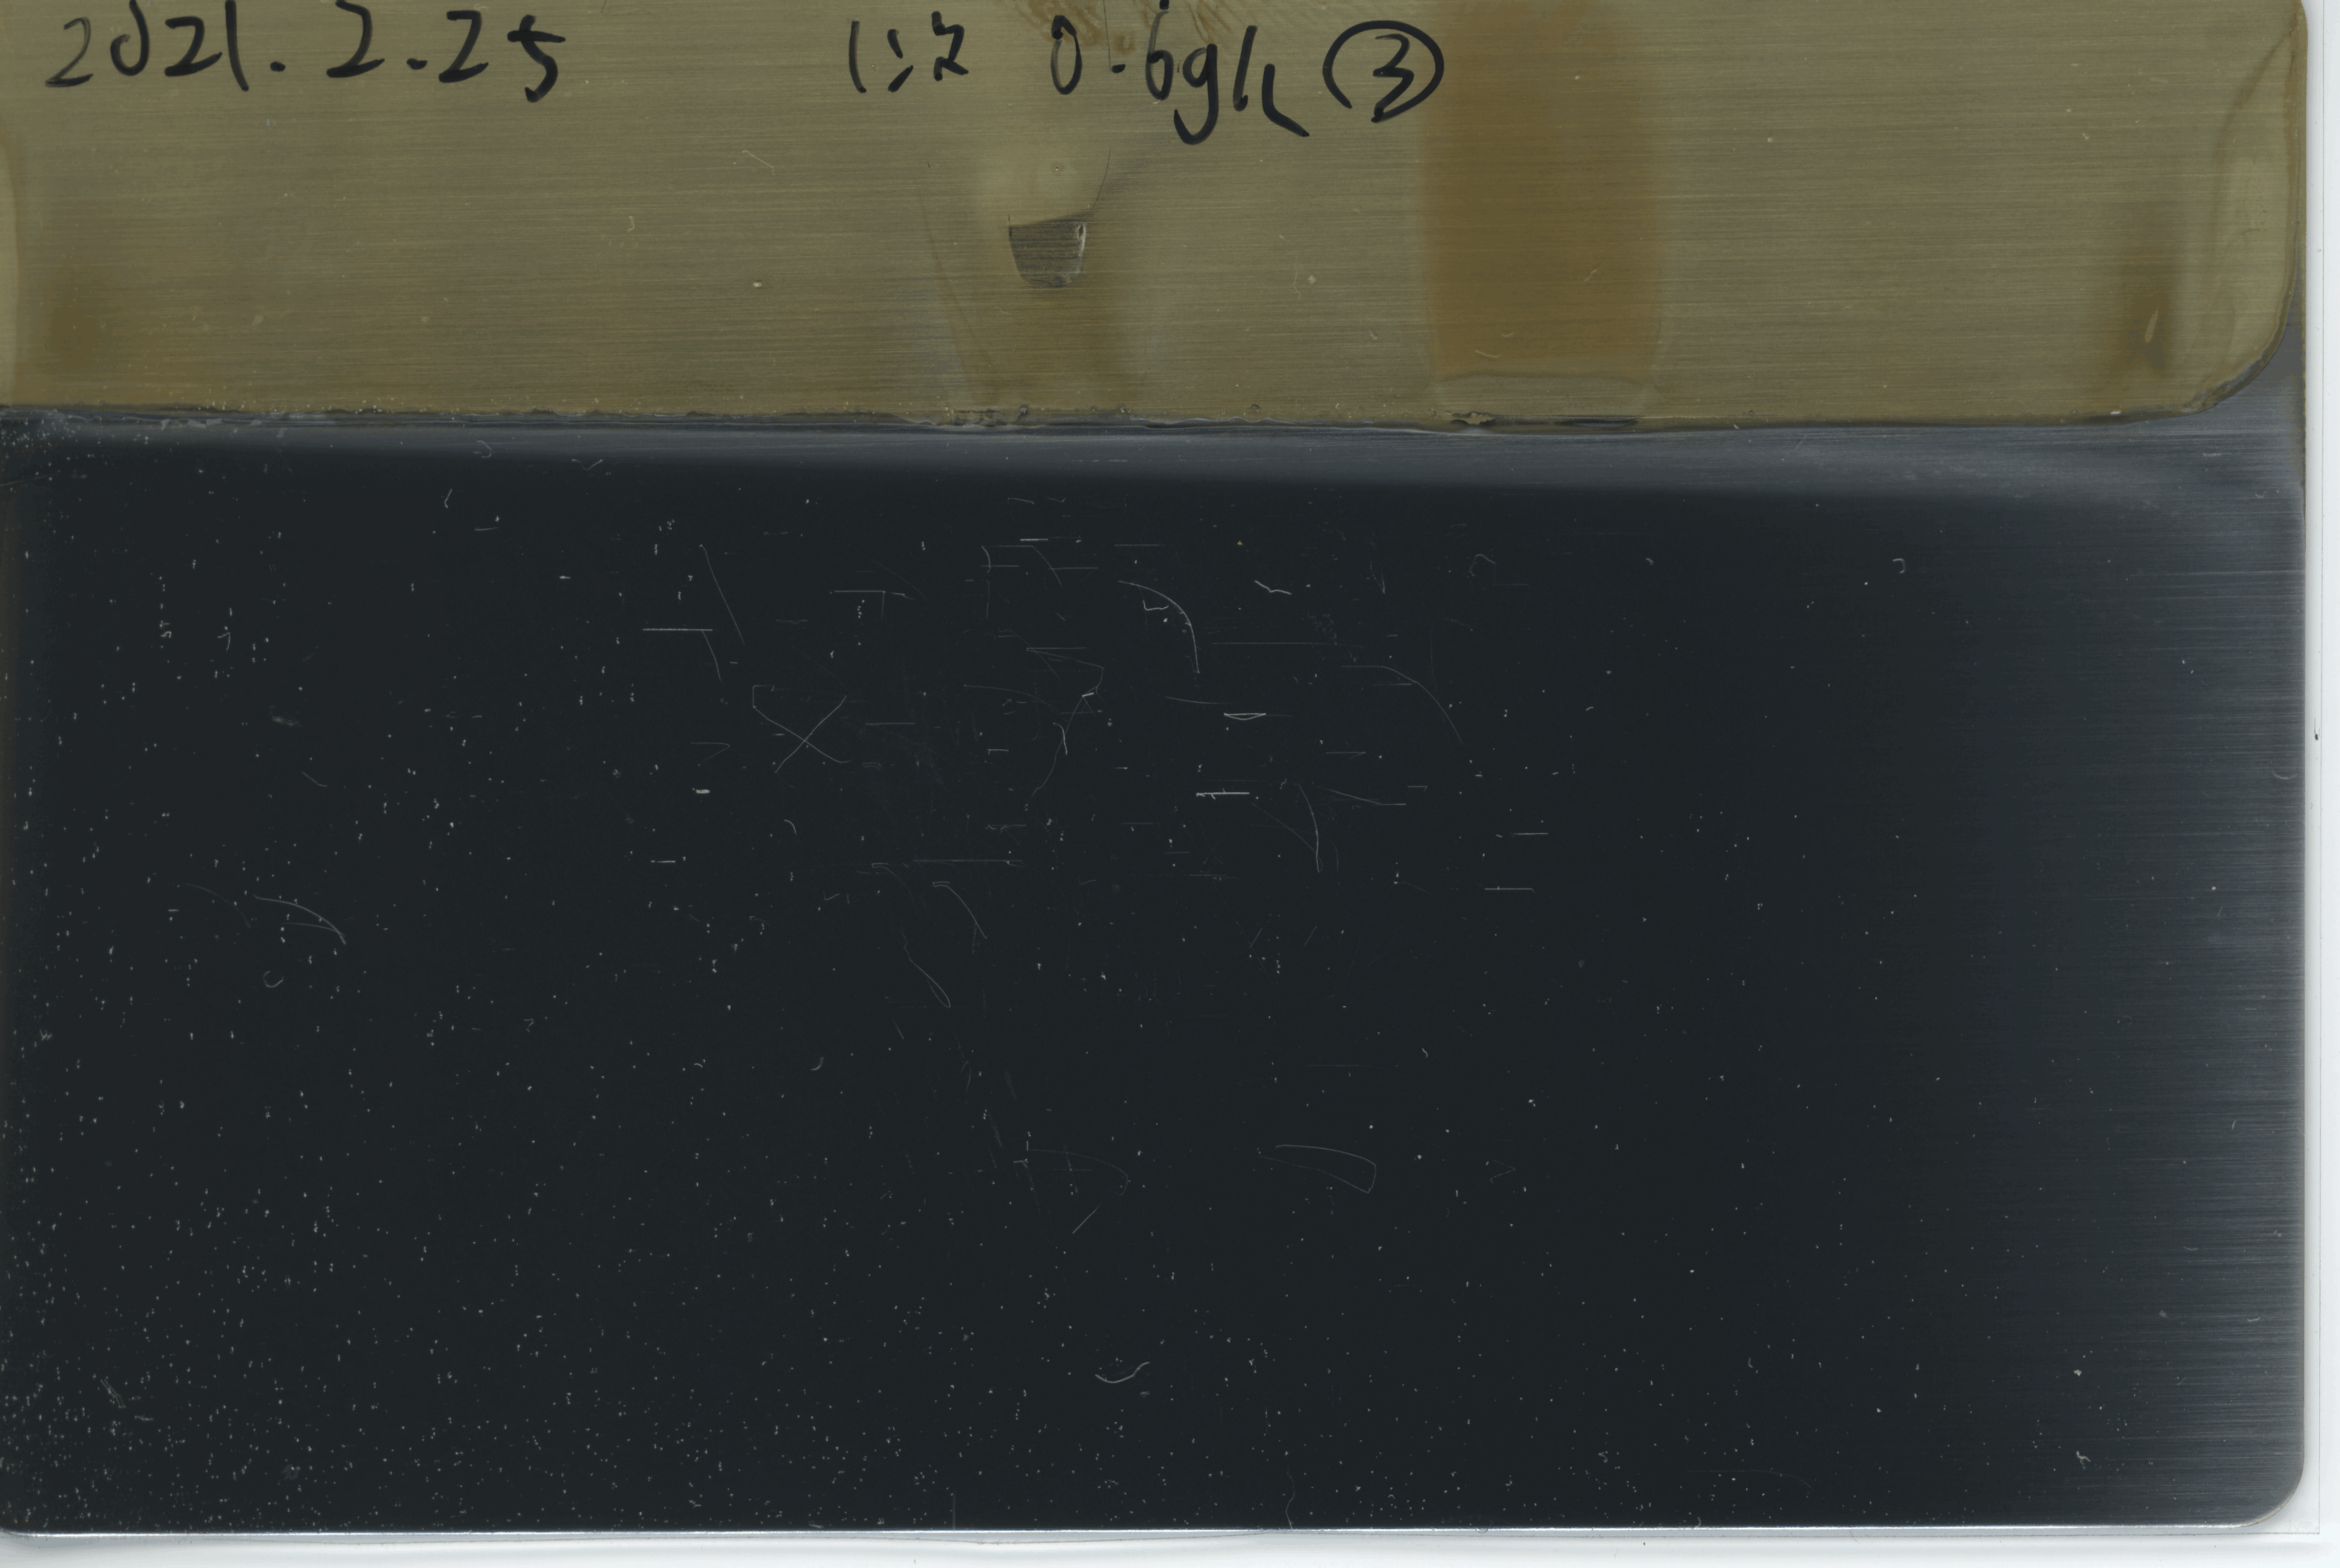 2021.2.25 1次 0.6g/L ③